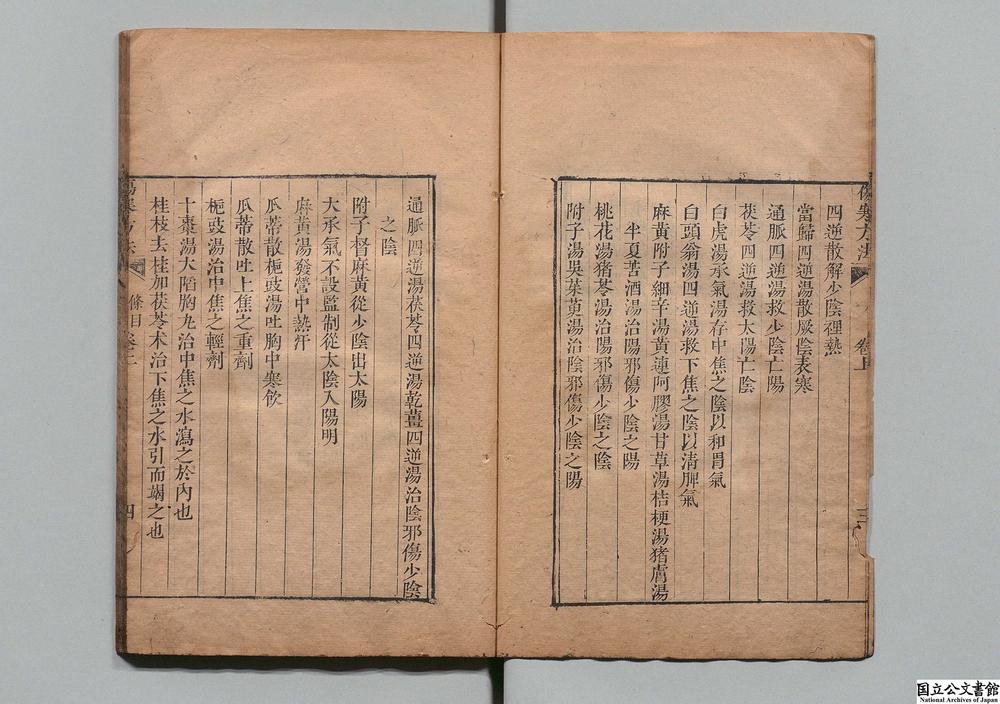 四逆散解少陰裡熱
當歸四逆湯散厥陰表寒
通脈四逆湯救少陰亡陽
茯苓四逆湯救太陽亡陰
白虎湯承氣湯存中焦之陰以和胃氣
白頭翁湯四逆湯救下焦之陰以清脾氣
麻黃附子細辛湯黃連阿膠湯甘草湯桔梗湯猪膚湯
半夏苦酒湯治陽邪傷少陰之陽
桃花湯猪苓湯治陽邪傷少陰之陰
附子湯吳茱萸湯治陰邪傷少陰之陽
通脈四逆湯茯苓四逆湯乾薑四逆湯治陰邪傷少陰
之陰
附子督麻黃從少陰出太陽
大承氣不設監制從太陰入陽明
麻黃湯發營中熱汗
瓜蒂散梔豉湯吐胸中寒飲
瓜蒂散吐上焦之重劑
梔豉湯治中焦之輕劑
十棗湯大陷胸丸治中焦之水瀉之於內也
桂枝去桂加茯苓术治下焦之水引而竭之也
傷寒方法
條目
四
国立公文書館
National Archives of Japan